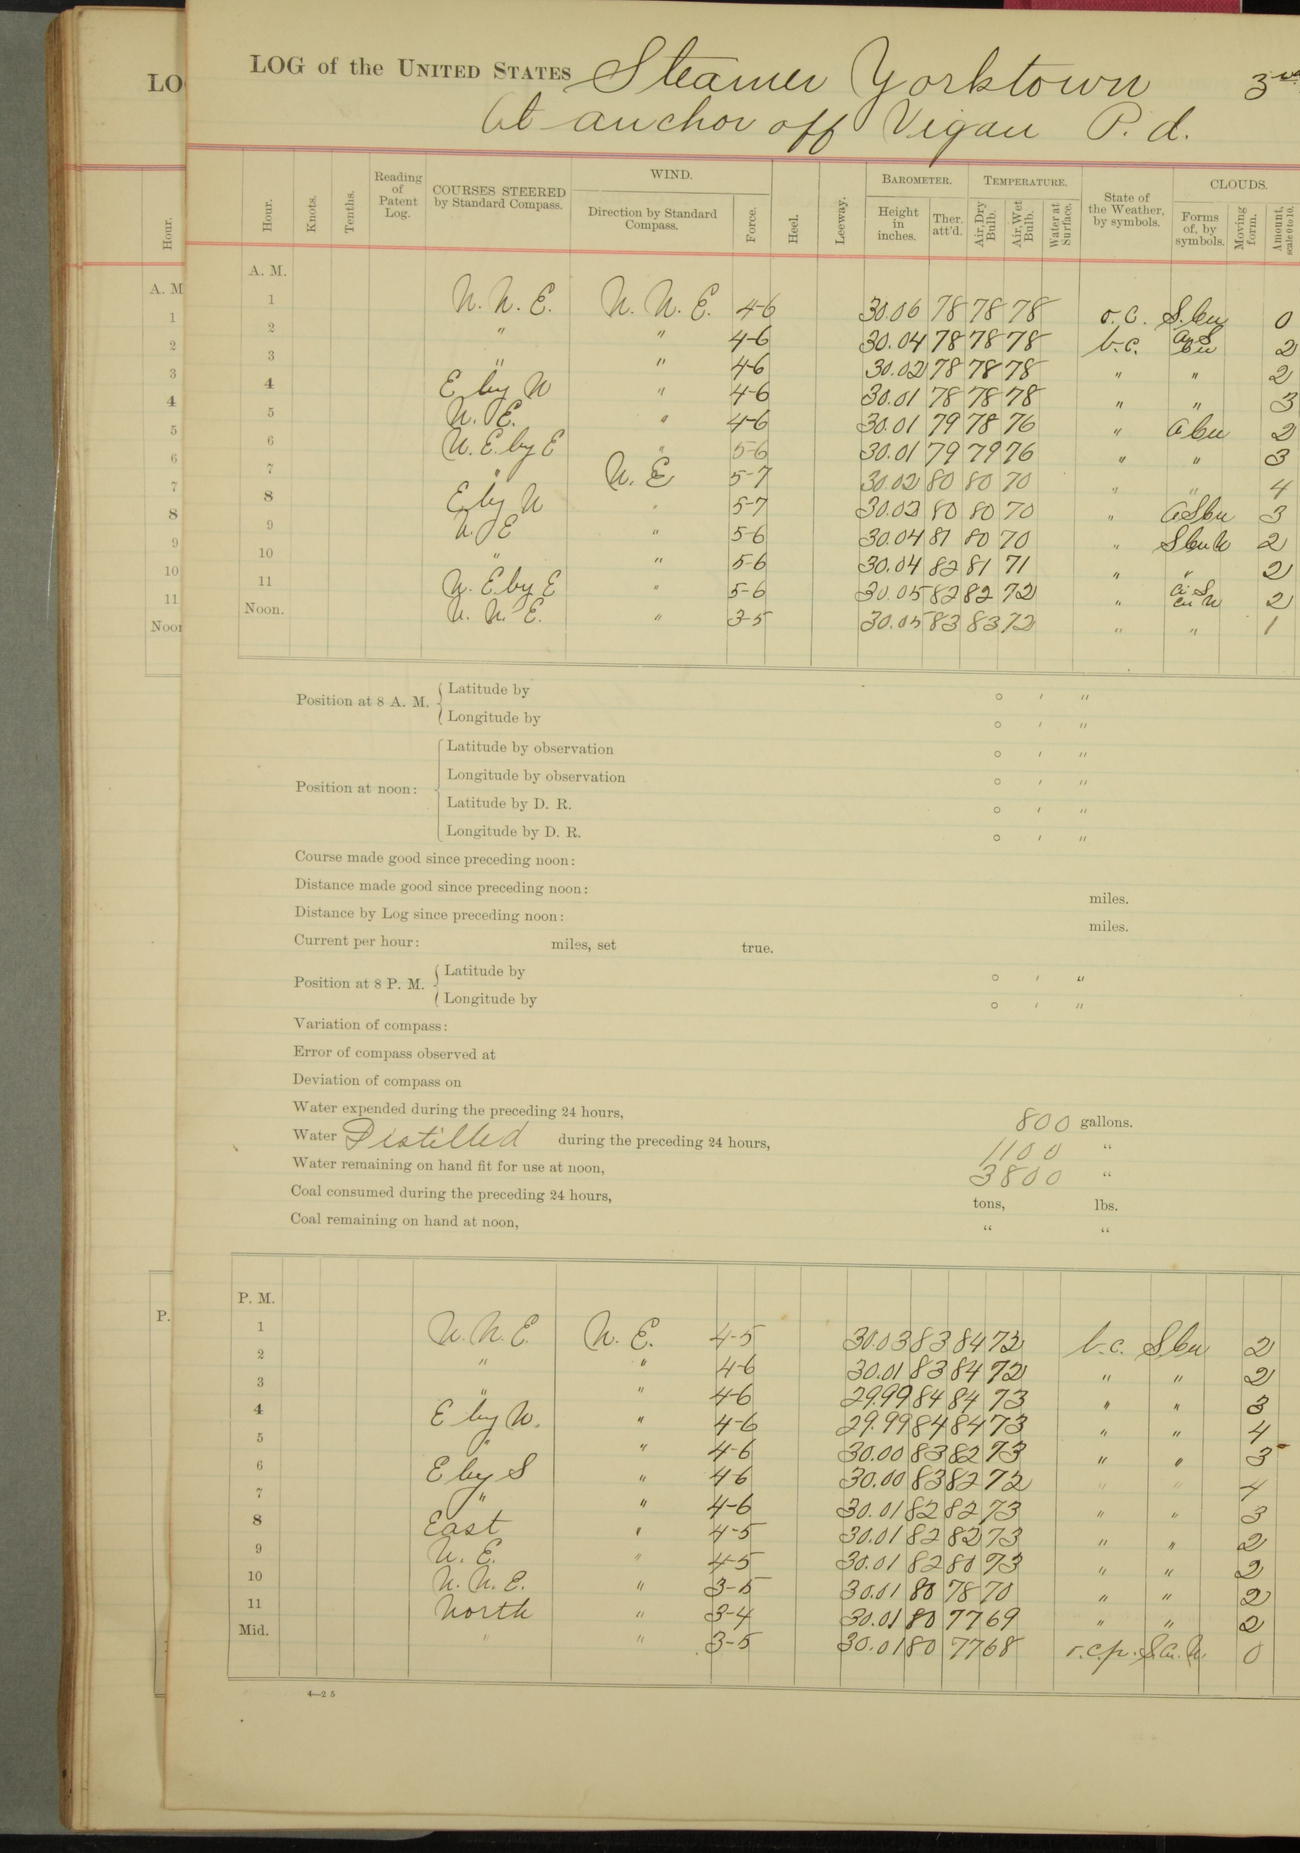 LOG of the UNITED STATES Steamer Yorktown
At anchor off Vigan P. d.
Hour. Knots. Tenths. Reading of Patent Log. COURSES STEERED by Standard Compass. WIND. Direction by Standard Compass. Force. Heel. Leeway. BAROMETER. Height in inches. Ther. att'd. TEMPERATURE. Air, Dry Bulb. Air, Wet Bulb. Water at Surface. State of the Weather, by symbols. CLOUDS. Forms of, by symbols. Moving form. Amount, scale 0 to 10.
A. M.
1 N. N. E. N. N. E. 4-6 30.06 78 78 78 o. c. S. Cu 0
2 " " 4-6 30.04 78 78 78 b. c. 2
3 " " 4-6 30.02 78 78 78 " " 2
4 E by N " 4-6 30.01 78 78 78 " " 3
5 N. E. " 4-6 30.01 79 78 76 " a Cu 2
6 N. E. by E " 5-6 30.01 79 79 76 " " 3
7 " N. E 5-7 30.02 80 80 70 " " 4
8 E by N " 5-7 30.02 80 80 70 " a S Cu 3
9 N. E " 5-6 30.04 81 80 70 " S Cu N 2
10 " " 5-6 30.04 82 81 71 " " 2
11 N. E by E " 5-6 30.05 82 82 72 " Ci S Cu N 2
Noon. N. N. E. " 3-5 30.05 83 83 72 " " 1
Position at 8 A. M. Latitude by ° ′ ″
Longitude by ° ′ ″
Position at noon: Latitude by observation ° ′ ″
Longitude by observation ° ′ ″
Latitude by D. R. ° ′ ″
Longitude by D. R. ° ′ ″
Course made good since preceding noon:
Distance made good since preceding noon: miles.
Distance by Log since preceding noon: miles.
Current per hour: miles, set true.
Position at 8 P. M. Latitude by ° ′ ″
Longitude by ° ′ ″
Variation of compass:
Error of compass observed at
Deviation of compass on
Water expended during the preceding 24 hours, 800 gallons.
Water Distilled during the preceding 24 hours, 1100 "
Water remaining on hand fit for use at noon, 3800 "
Coal consumed during the preceding 24 hours, tons, lbs.
Coal remaining on hand at noon, " "
P. M.
1 N. N. E. N. E. 4-5 30.03 83 84 72 b. c. S Cu 2
2 " " 4-6 30.01 83 84 72 " " 2
3 " " 4-6 29.99 84 84 73 " " 3
4 E by N. " 4-6 29.99 84 84 73 " " 4
5 " " 4-6 30.00 83 82 73 " " 3
6 E by S " 4-6 30.00 83 82 72 " " 4
7 " " 4-6 30.01 82 82 73 " " 3
8 East " 4-5 30.01 82 82 73 " " 2
9 N. E. " 4-5 30.01 82 80 73 " " 2
10 N. N. E. " 3-5 30.01 80 78 70 " " 2
11 North " 3-4 30.01 80 77 69 " " 2
Mid. " " 3-5 30.01 80 77 68 o. c. p. S. Cu. N 0
4—25